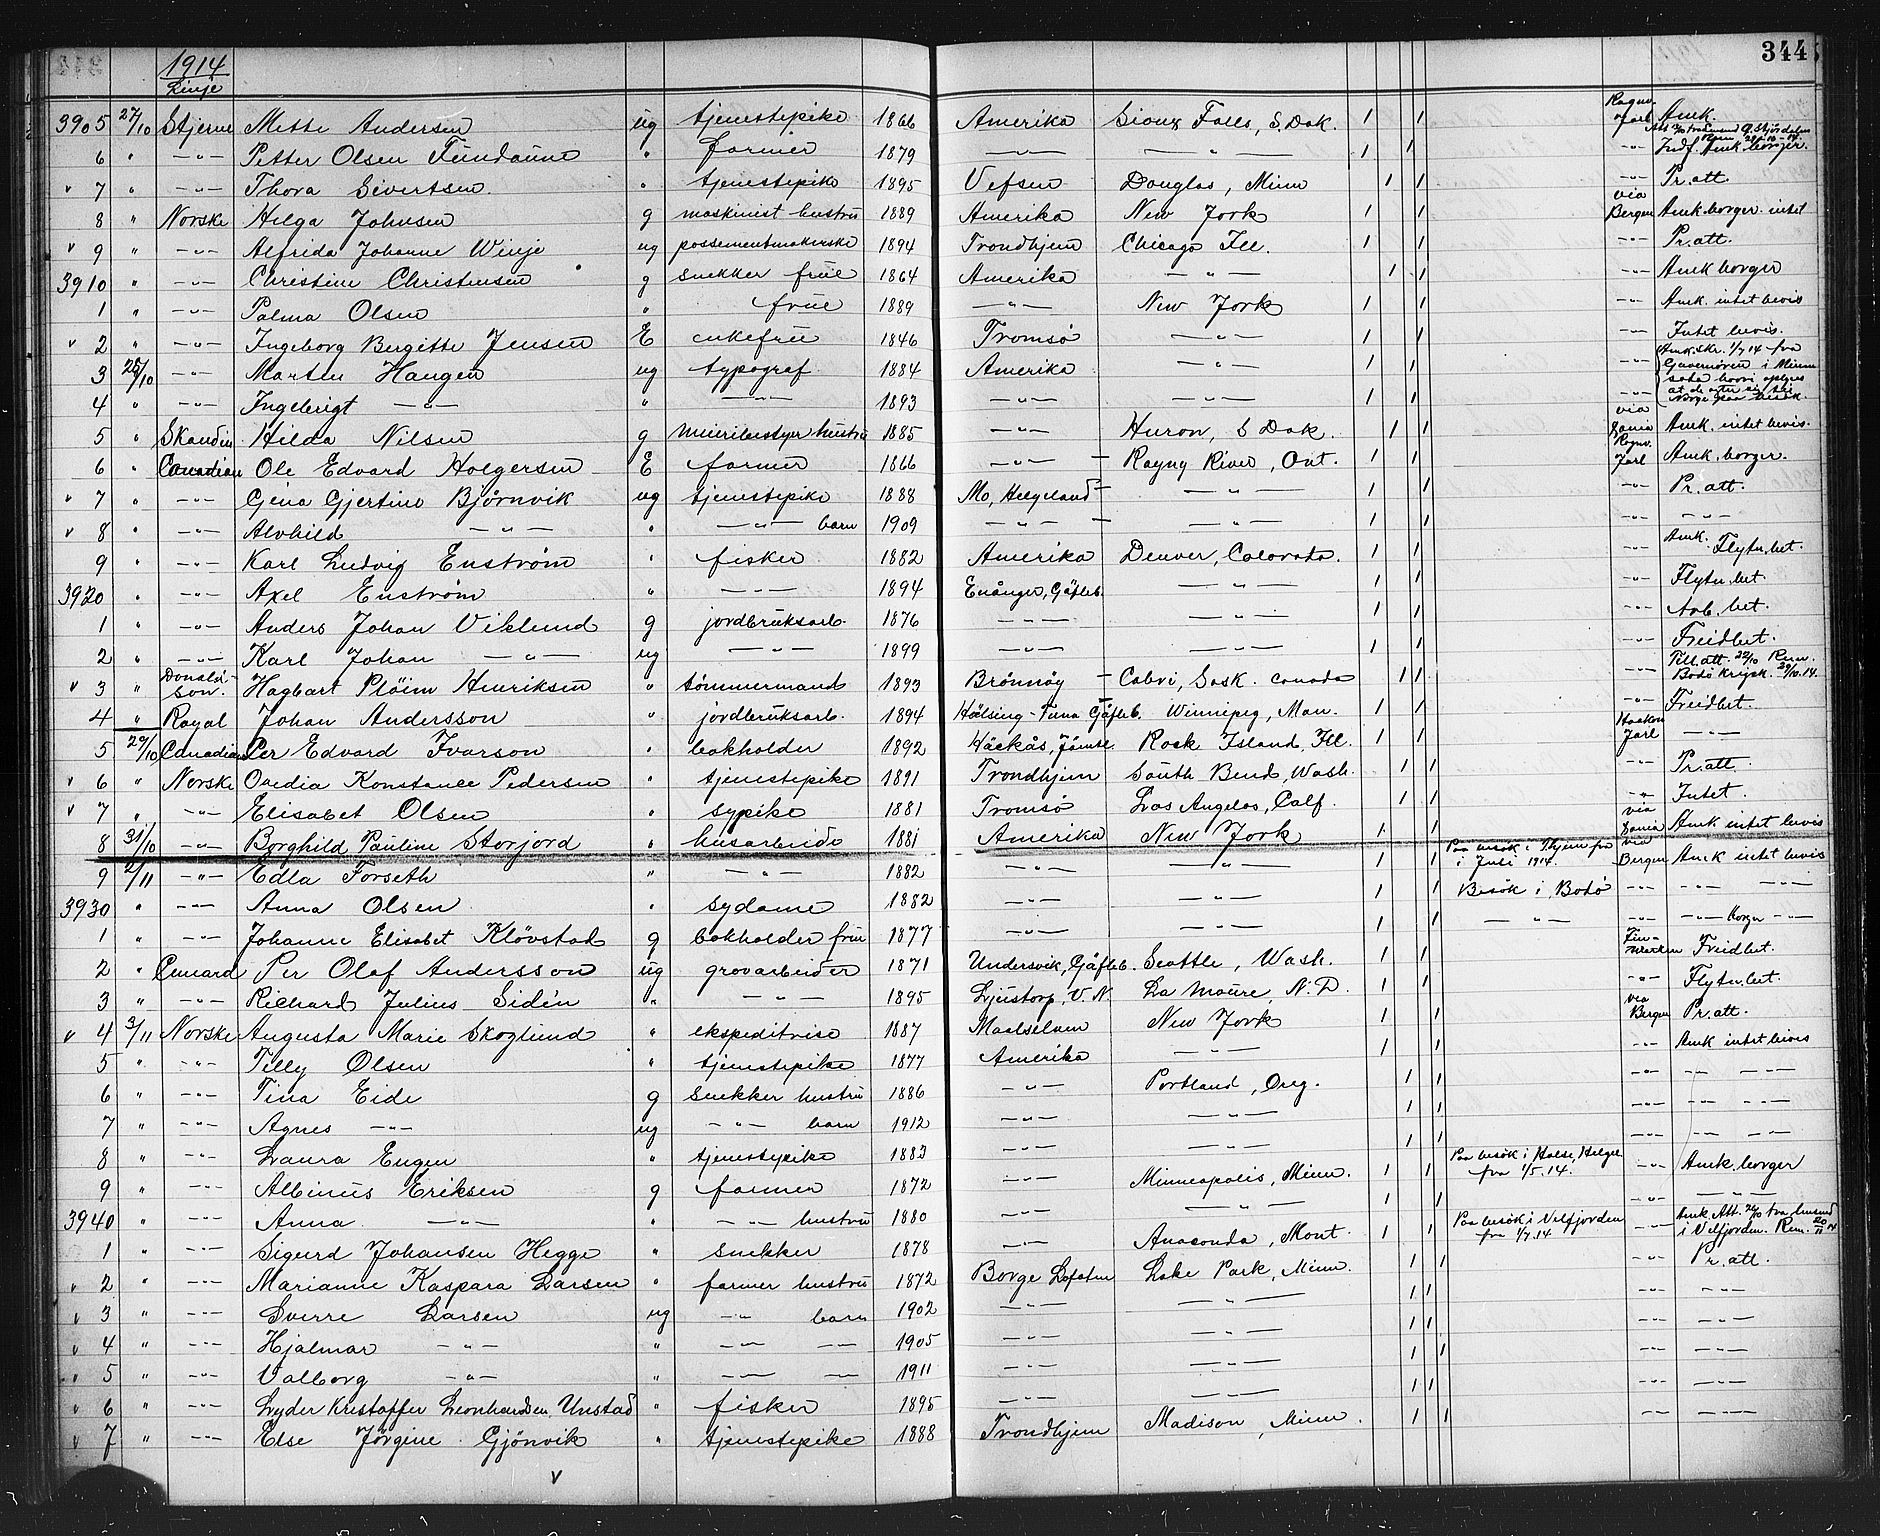 344
1914
Linje
3905 27/10 Stjerne Mette Andersen ug tjenestepike 1866 Amerika Sioux Falls, S. Dak. 1 1 Ragnv. Jarl Amk.
6 " —"— Petter Olsen Fundaune " farmer 1879 —"— —"— 1 1 —"— Indf. Amk borger.
v 7 " —"— Thora Sivertsen " tjenestepike 1895 Vefsen Douglas, Minn 1 1 —"— Pr. att.
8 " Norske Helga Johnsen g maskinist hustru 1889 Amerika New York 1 1 via Bergen Amk borger intet
v 9 " —"— Alfrida Johanne Winje ug possementmakerske 1894 Trondhjem Chicago Ill. 1 1 —"— Pr. att.
3910 " —"— Christine Christensen g snekker frue 1864 Amerika —"— 1 1 —"— Amk borger
1 " —"— Palma Olsen " frue 1889 —"— New York 1 1 —"— Amk. intet bevis
v 2 " —"— Ingeborg Bergitte Jensen E enkefrue 1846 Tromsø —"— 1 1 —"— Intet bevis.
3 28/10 —"— Martin Haugen ug typograf 1884 Amerika —"— 1 1 —"— Amk. skr. 1/7 14 fra Guvernøren i Minne
4 " —"— Ingebrigt —"— " —"— 1893 —"— —"— 1 1 —"—
5 " Skandin. Hilda Nilsen g meieribestyer hustru 1885 —"— Huron, S Dak. 1 1 via Dania Amk. intet bevis.
6 " Canadian Ole Edvard Holgersen E farmer 1866 —"— Rayny River, Ont. 1 1 Ragnv. Jarl Amk. borger.
v 7 " —"— Gjena Gjertine Bjørnvik ug tjenestepike 1888 Mo, Helgeland —"— 1 1 —"— Pr. att.
v 8 " —"— Alvhild —"— " —"— barn 1909 —"— —"— 1 1 —"— —"—
9 " —"— Karl Ludvig Enström " fisker 1882 Amerika Denver, Colorado. 1 1 —"— Amk. Flytn. bet.
3920 " —"— Axel Enström " —"— 1894 Enånger, Gäfleb. —"— 1 1 —"— Flytn bet
1 " —"— Anders Johan Viklund g jordbruksarb. 1876 —"— —"— 1 1 —"— Arb. bet.
2 " —"— Karl Johan —"— ug —"— 1899 —"— —"— 1 1 —"— Freidbet.
v 3 " Donaldson. Hagbart Plöim Henriksen " tömmermand 1893 Brønnøy Cabri, Sask. Canada 1 1 —"— Till. att. 22/10 Rem. Bodø krigsk. 29/10.14.
4 " Royal Johan Andersson " jordbruksarb. 1894 Hälsing-Tuna Gäfleb. Winnipeg, Man. 1 1 —"— Freidbet.
5 29/10 Canadian Per Edvard Ivarson " bokholder 1892 Häckås, Jämtl. Rock Island, Ill. 1 1 Haakon Jarl —"—
v 6 " Norske Ovedia Konstance Pedersen " tjenestepike 1891 Trondhjem South Bend, Wash. 1 1 —"— Pr. att.
v 7 " —"— Elisabet Olsen " sypike 1881 Tromsø Los Angelos, Calf. 1 1 —"— Intet.
8 31/10 —"— Borghild Pauline Storjord " husarbeide 1881 Amerika New York 1 1 via Dania Amk intet bevis
9 2/11 —"— Edla Forseth " —"— 1882 —"— —"— 1 1 Paa besøk i Thjem fra i Juli 1914. via Bergen Amk intet bevis
3930 " —"— Anna Olsen " sydame 1882 —"— —"— 1 1 Besøk i Bodø —"— —"—
1 " —"— Johanne Elisabet Klövstad g bokholder frue 1877 —"— —"— 1 1 —"— —"— —"— borger —"—
2 " Cunard Per Olof Andersson ug grovarbeider 1871 Undersvik, Gäfleb. Seattle, Wash. 1 1 Finmarken Freidbet.
3 " —"— Richard Julius Sidén " —"— 1895 Ljustorp, V. N. La Moure, N. D. 1 1 —"— Flytn. bet.
v 4 3/11 Norske Augusta Marie Skoglund " ekspeditrise 1887 Maalselven New York 1 1 via Bergen Pr. att.
5 " —"— Tilly Olsen " tjenestepike 1877 Amerika —"— 1 1 —"— Amk intet bevis
6 " —"— Tina Eide g snekker hustru 1886 —"— Portland, Oreg. 1 1 —"— —"—
7 " —"— Agnes —"— ug —"— barn 1912 —"— —"— 1 1 —"— —"—
8 " —"— Laura Eugen " tjenestepike 1883 —"— —"— 1 1 —"— —"—
9 " —"— Albinus Eriksen g farmer 1872 —"— Minneapolis, Minn. 1 1 Paa besøk i Halse, Helgel. fra 1/5. 14. —"— Amk. borger
3940 " —"— Anna —"— " —"— hustru 1880 —"— —"— 1 1 —"— —"—
1 " —"— Sigurd Johansen Hegge " snekker 1878 —"— Anaconda, Mont. 1 Paa besøk i Velfjorden fra 1/7. 14 —"— Amk Att. 26/10 fra lensmd i Velfjorden. Rem. 20/11 14
v 2 " —"— Marianne Kaspara Larsen " farmer hustru 1872 Borge Lofoten Lake Park, Minn. 1 1 —"— Pr. att.
v 3 " —"— Sverre Larsen ug —"— barn 1902 —"— —"— 1 1 —"— —"—
v 4 " —"— Hjalmar —"— " —"— —"— 1905 —"— —"— 1 1 —"— —"—
v 5 " —"— Valborg —"— " —"— —"— 1911 —"— —"— 1 1 —"— —"—
v 6 " —"— Lyder Kristoffer Leonhardsen Unstad " fisker 1895 —"— —"— 1 1 —"— —"—
v 7 " —"— Else Jörgine Gjönvik " tjenestepike 1888 Trondhjem Madison, Minn. 1 1 —"— —"—
v